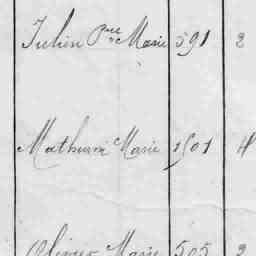 Julien Pre Marie 591 2
Mathurin Marie 1501 4
Olivier Marie 505 2